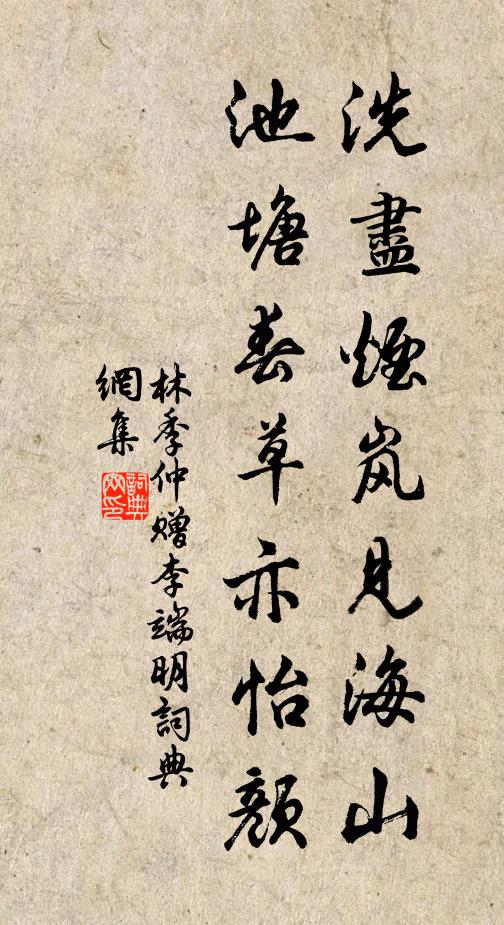 洗盡煙嵐見海山
池塘春草亦怡顏
林季仲贈李端明詞典
網集
詞典
網印